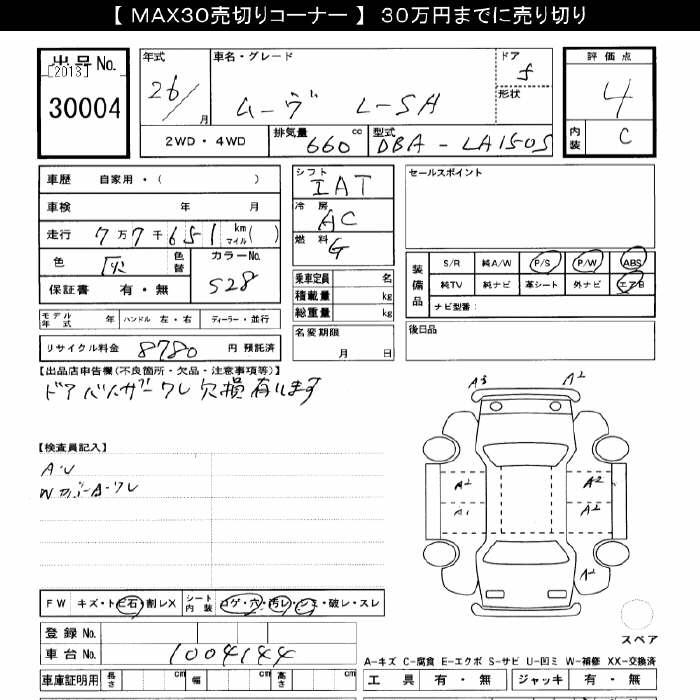 【 MAX30売切りコーナー 】 30万円までに売り切り
出品No.
[2013]
30004
年式
26/
月
車名・グレード
ムーヴ L-SA
ドア
5
形状
評価点
4
内装
C
2WD・4WD
排気量
660
cc
型式
DBA-LA150S
車歴 自家用・( )
車検 年 月
走行 7万7千651 km マイル( )
色 灰
色替
カラーNo.
S28
保証書 有・無
シフト
IAT
冷房
AC
燃料
G
セールスポイント
乗車定員 名
積載量 kg
総重量 kg
名変期限
月 日
装備品
S/R 純A/W P/S P/W ABS
純TV 純ナビ 革シート 外ナビ エアB
ナビ型番:
後日品
モデル年式 年
ハンドル 左・右
ディーラー・並行
リサイクル料金 8780 円 預託済
【出品店申告欄(不良箇所・欠品・注意事項等)】
ドアバイザーワレ欠損有ります
【検査員記入】
A・U
Wカバー A・ワレ
A3
A2
A2
A2
A1
A2
A2
FW キズ・トビ石・割レX
シート内装 コゲ・穴・汚レ・シミ・破レ・スレ
登録No.
車台No. 1004144
車庫証明用 長さ cm 幅 cm 高さ cm
スペア
A-キズ C-腐食 E-エクボ S-サビ U-凹ミ W-補修 XX-交換済
工具 有・無 ジャッキ 有・無